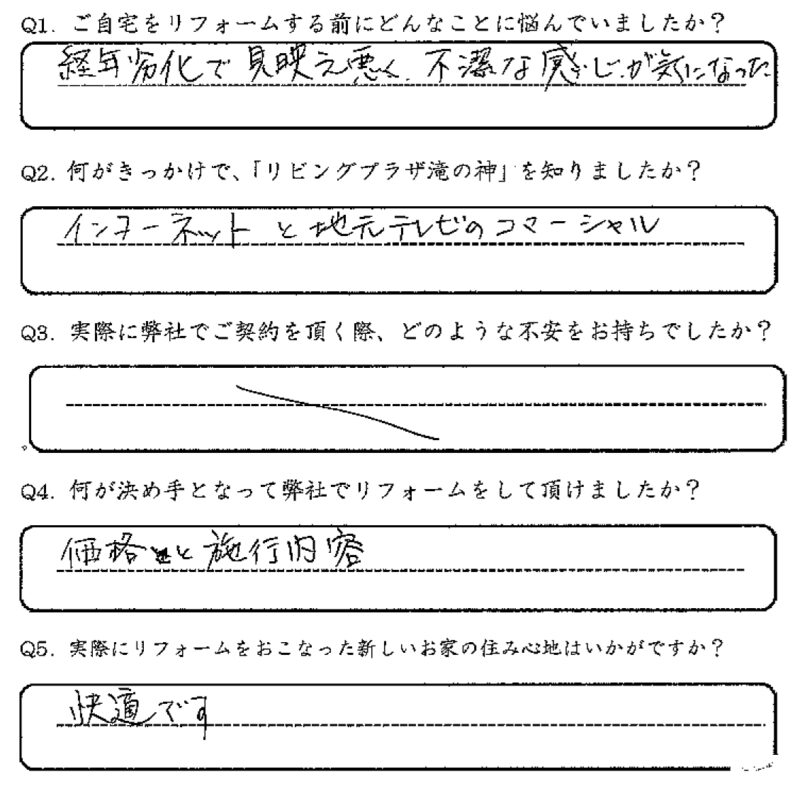 Q1. ご自宅をリフォームする前にどんなことに悩んでいましたか？
経年劣化で見映え悪く、不潔な感じが気になった
Q2. 何がきっかけで、「リビングプラザ滝の神」を知りましたか？
インターネットと地元テレビのコマーシャル
Q3. 実際に弊社でご契約を頂く際、どのような不安をお持ちでしたか？
Q4. 何が決め手となって弊社でリフォームをして頂けましたか？
価格と施行内容
Q5. 実際にリフォームをおこなった新しいお家の住み心地はいかがですか？
快適です